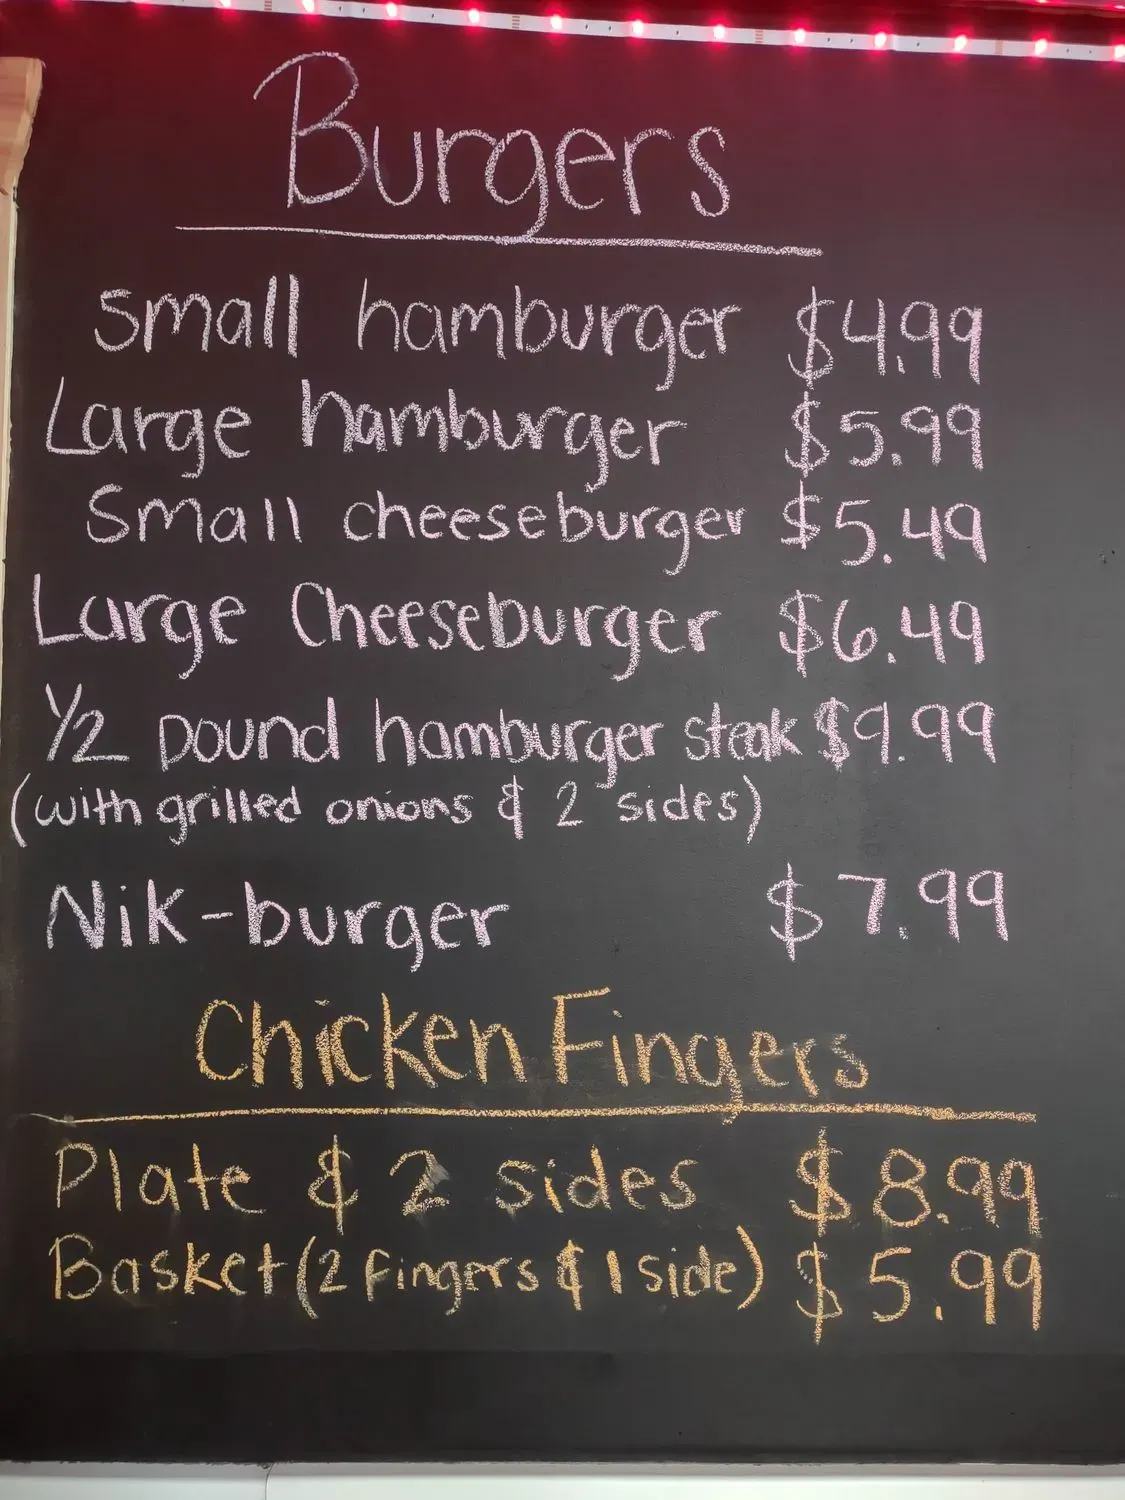 Burgers
Small hamburger $4.99
Large hamburger $5.99
Small cheeseburger $5.49
Large Cheeseburger $6.49
1/2 pound hamburger steak $9.99
(with grilled onions & 2 sides)
Nik-burger $7.99
Chicken Fingers
Plate & 2 sides $8.99
Basket (2 fingers & 1 side) $5.99